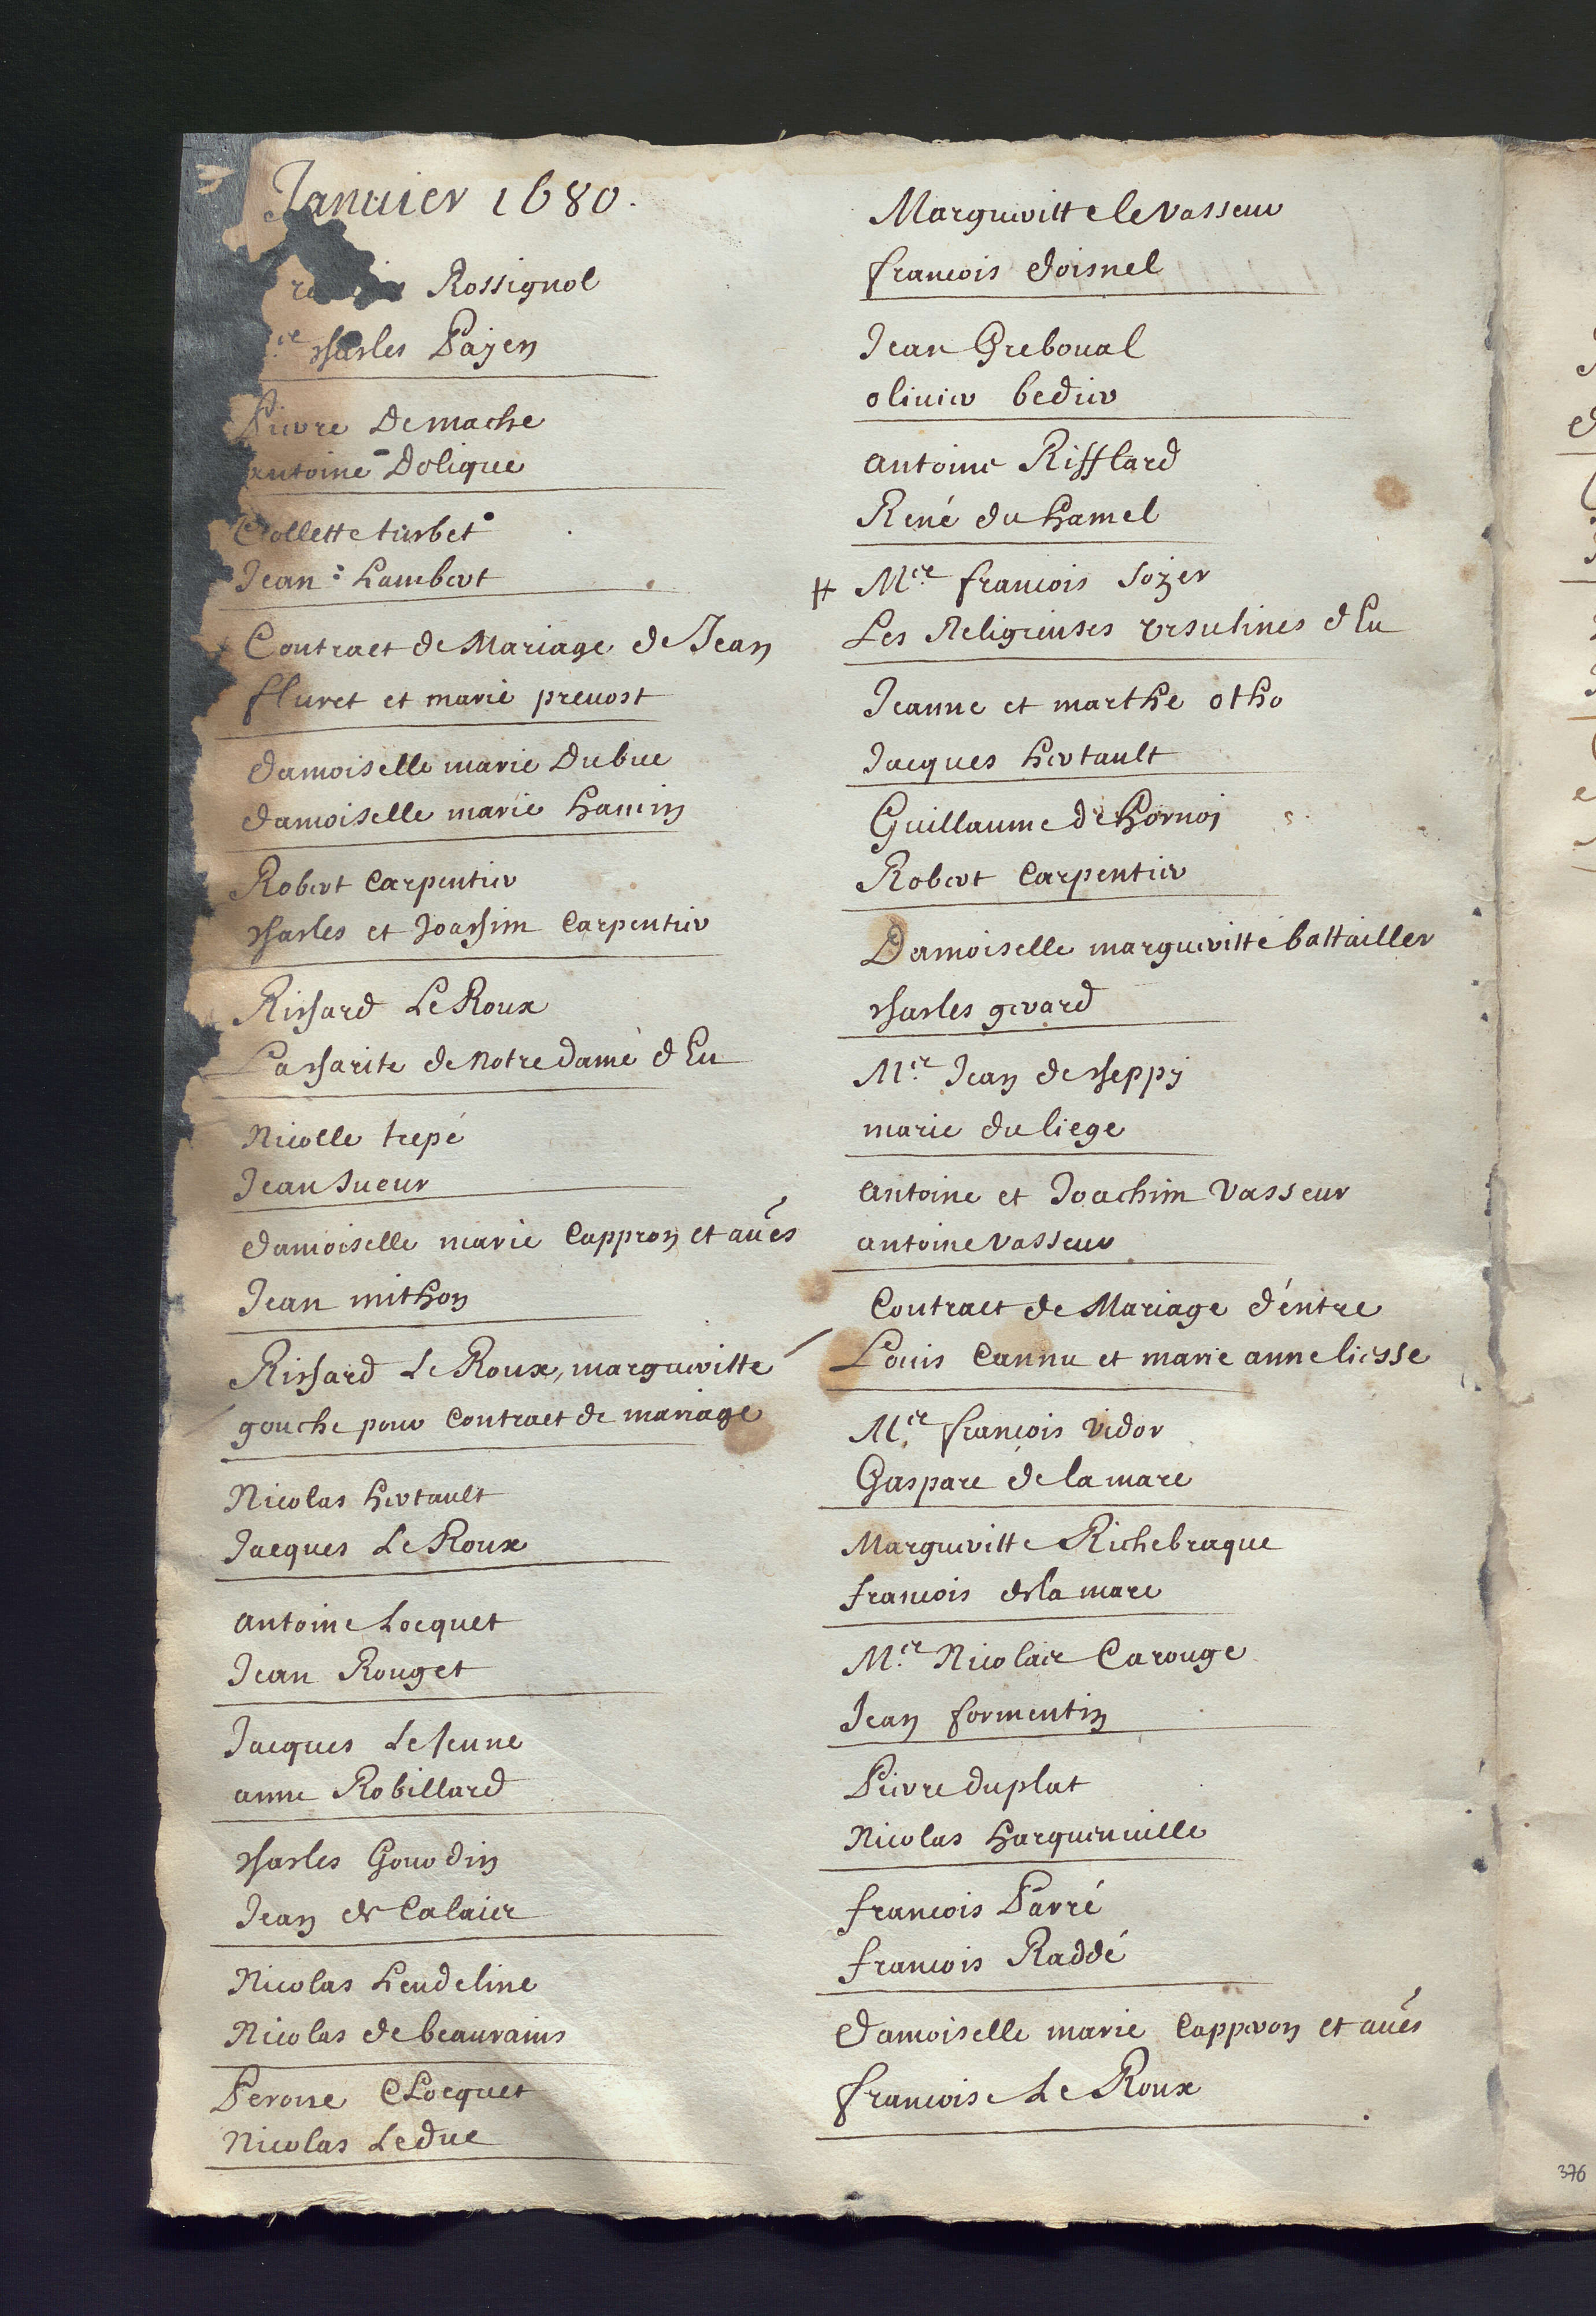 Januier 1680.
Rossignol
Charles Payen
Pierre Demache
antoine Dolique
Collette turbet
Jean Lambert
Contract de Mariage de Jean
fluret et marie preuost
damoiselle marie Dubuc
damoiselle marie hanin
Robert Carpentier
Charles et Joachim Carpentier
Richard Le Roux
La charite de Notre dame d Eu
Nicolle trepé
Jean Sueur
damoiselle marie Cappron et aues
Jean mithon
Richard Le Roux, margueritte
gouche pour Contract de mariage
Nicolas hertault
Jacques Le Roux
antoine Locquet
Jean Rouget
Jacques Le Jeune
anne Robillard
Charles Gourdin
Jean de Calais
Nicolas heudeline
Nicolas de beaurains
Perone CLocquet
Nicolas Leduc
Margueritte le vasseur
francois doisnel
Jean Greboual
oliuier bedier
antoine Rifflard
René du hamel
Mre francois Sozer
Les Religieuses Vrsulines d Eu
Jeanne et marthe otho
Jacques hertault
Guillaume de hornoi
Robert Carpentier
Damoiselle margueritte battailler
Charles gerard
Mre Jean de Cheppy
marie du liege
antoine et Joachim Vasseur
antoine vasseur
Contract de Mariage d'entre
Louis Cannu et marie anne liesse
Mre francois Vidor
Gaspare de la mare
Margueritte Richebraque
francois de la mare
Mre Nicolas Carouge
Jean formentin
Pierre duplat
Nicolas harguenuille
francois Parré
francois Raddé
damoiselle marie Capperon et aues
francois Le Roux
376